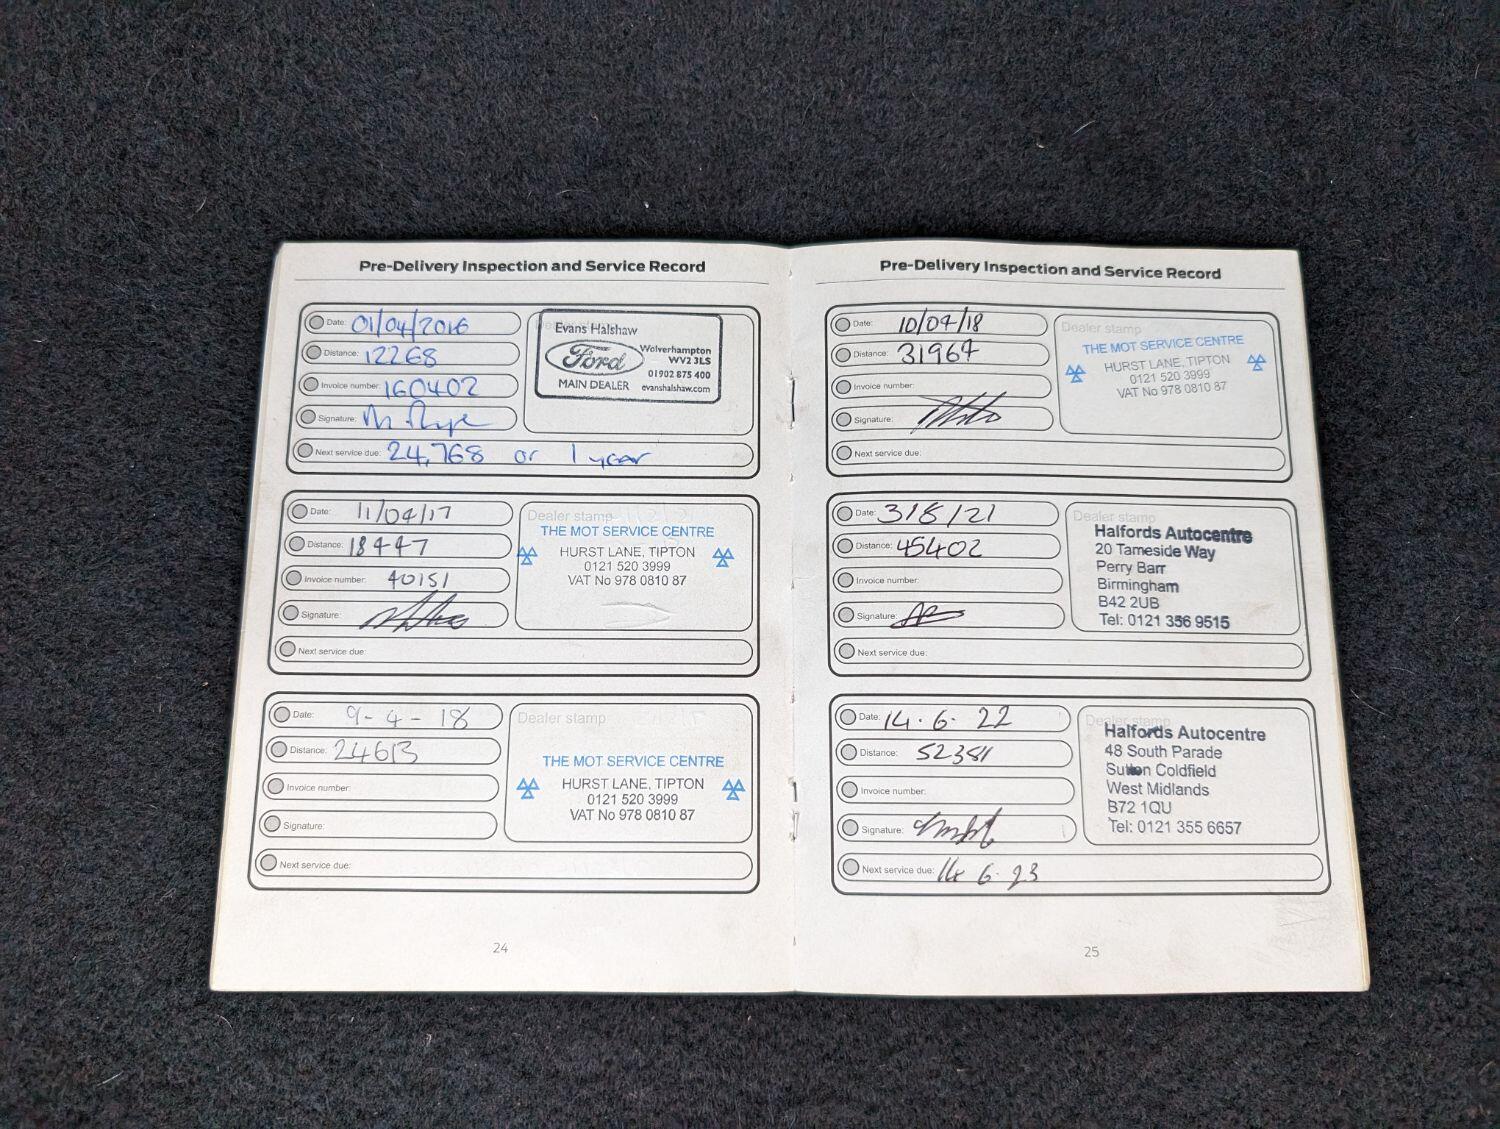 Pre-Delivery Inspection and Service Record
Date: 01/04/2016
Distance: 12268
Invoice number: 160402
Signature:
Next service due: 24,768 or 1 year
Evans Halshaw
Ford
Wolverhampton
WV2 3LS
01902 875 400
MAIN DEALER evanshalshaw.com
Date: 11/04/17
Distance: 18447
Invoice number: 40151
Signature:
Next service due:
Dealer stamp
THE MOT SERVICE CENTRE
HURST LANE, TIPTON
0121 520 3999
VAT No 978 0810 87
Date: 9-4-18
Distance: 24613
Invoice number:
Signature:
Next service due:
Dealer stamp
THE MOT SERVICE CENTRE
HURST LANE, TIPTON
0121 520 3999
VAT No 978 0810 87
24
Pre-Delivery Inspection and Service Record
Date: 10/04/18
Distance: 31967
Invoice number:
Signature:
Next service due:
Dealer stamp
THE MOT SERVICE CENTRE
HURST LANE, TIPTON
0121 520 3999
VAT No 978 0810 87
Date: 3/8/21
Distance: 45402
Invoice number:
Signature:
Next service due:
Dealer stamp
Halfords Autocentre
20 Tameside Way
Perry Barr
Birmingham
B42 2UB
Tel: 0121 356 9515
Date: 14.6.22
Distance: 52381
Invoice number:
Signature:
Next service due: 14 6.23
Dealer stamp
Halfords Autocentre
48 South Parade
Sutton Coldfield
West Midlands
B72 1QU
Tel: 0121 355 6657
25